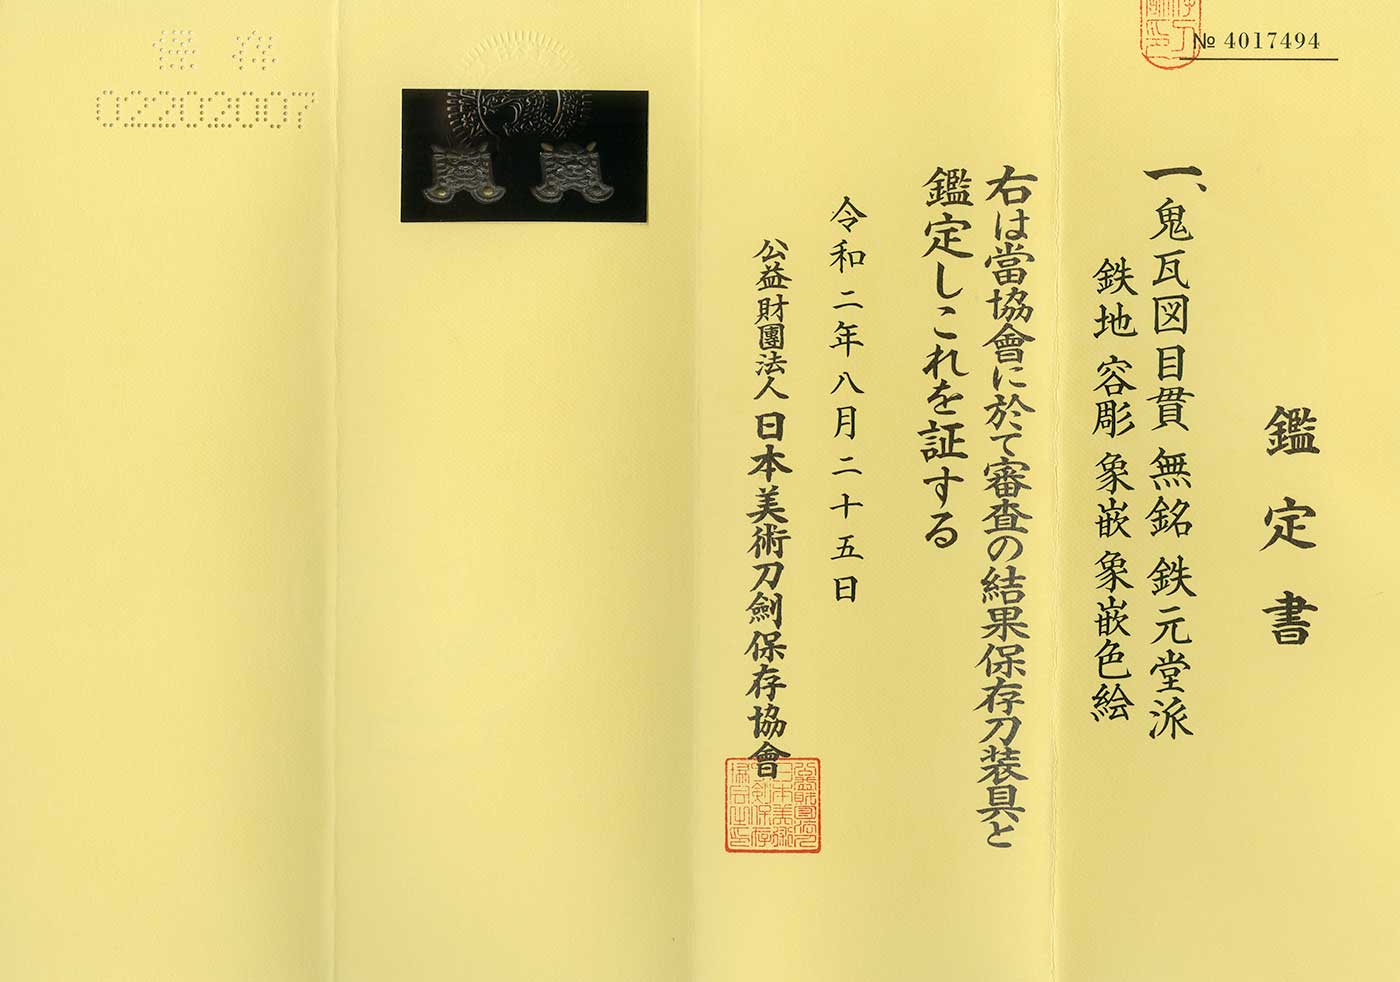 № 4017494
鑑定書
一、鬼瓦図目貫 無銘 鉄元堂派
鉄地 容彫 象嵌 象嵌色絵
右は當協會に於て審査の結果保存刀装具と
鑑定しこれを証する
令和二年八月二十五日
公益財團法人 日本美術刀劍保存協會
保存
02202007